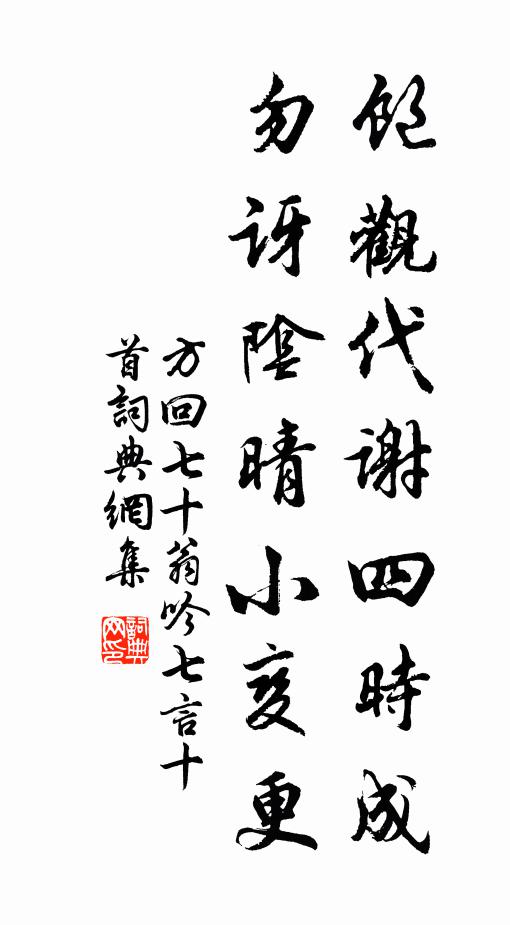 飽觀代謝四時成
勿訝陰晴小变更
方回七十翁吟七言十
首詞典網集
詞典网印